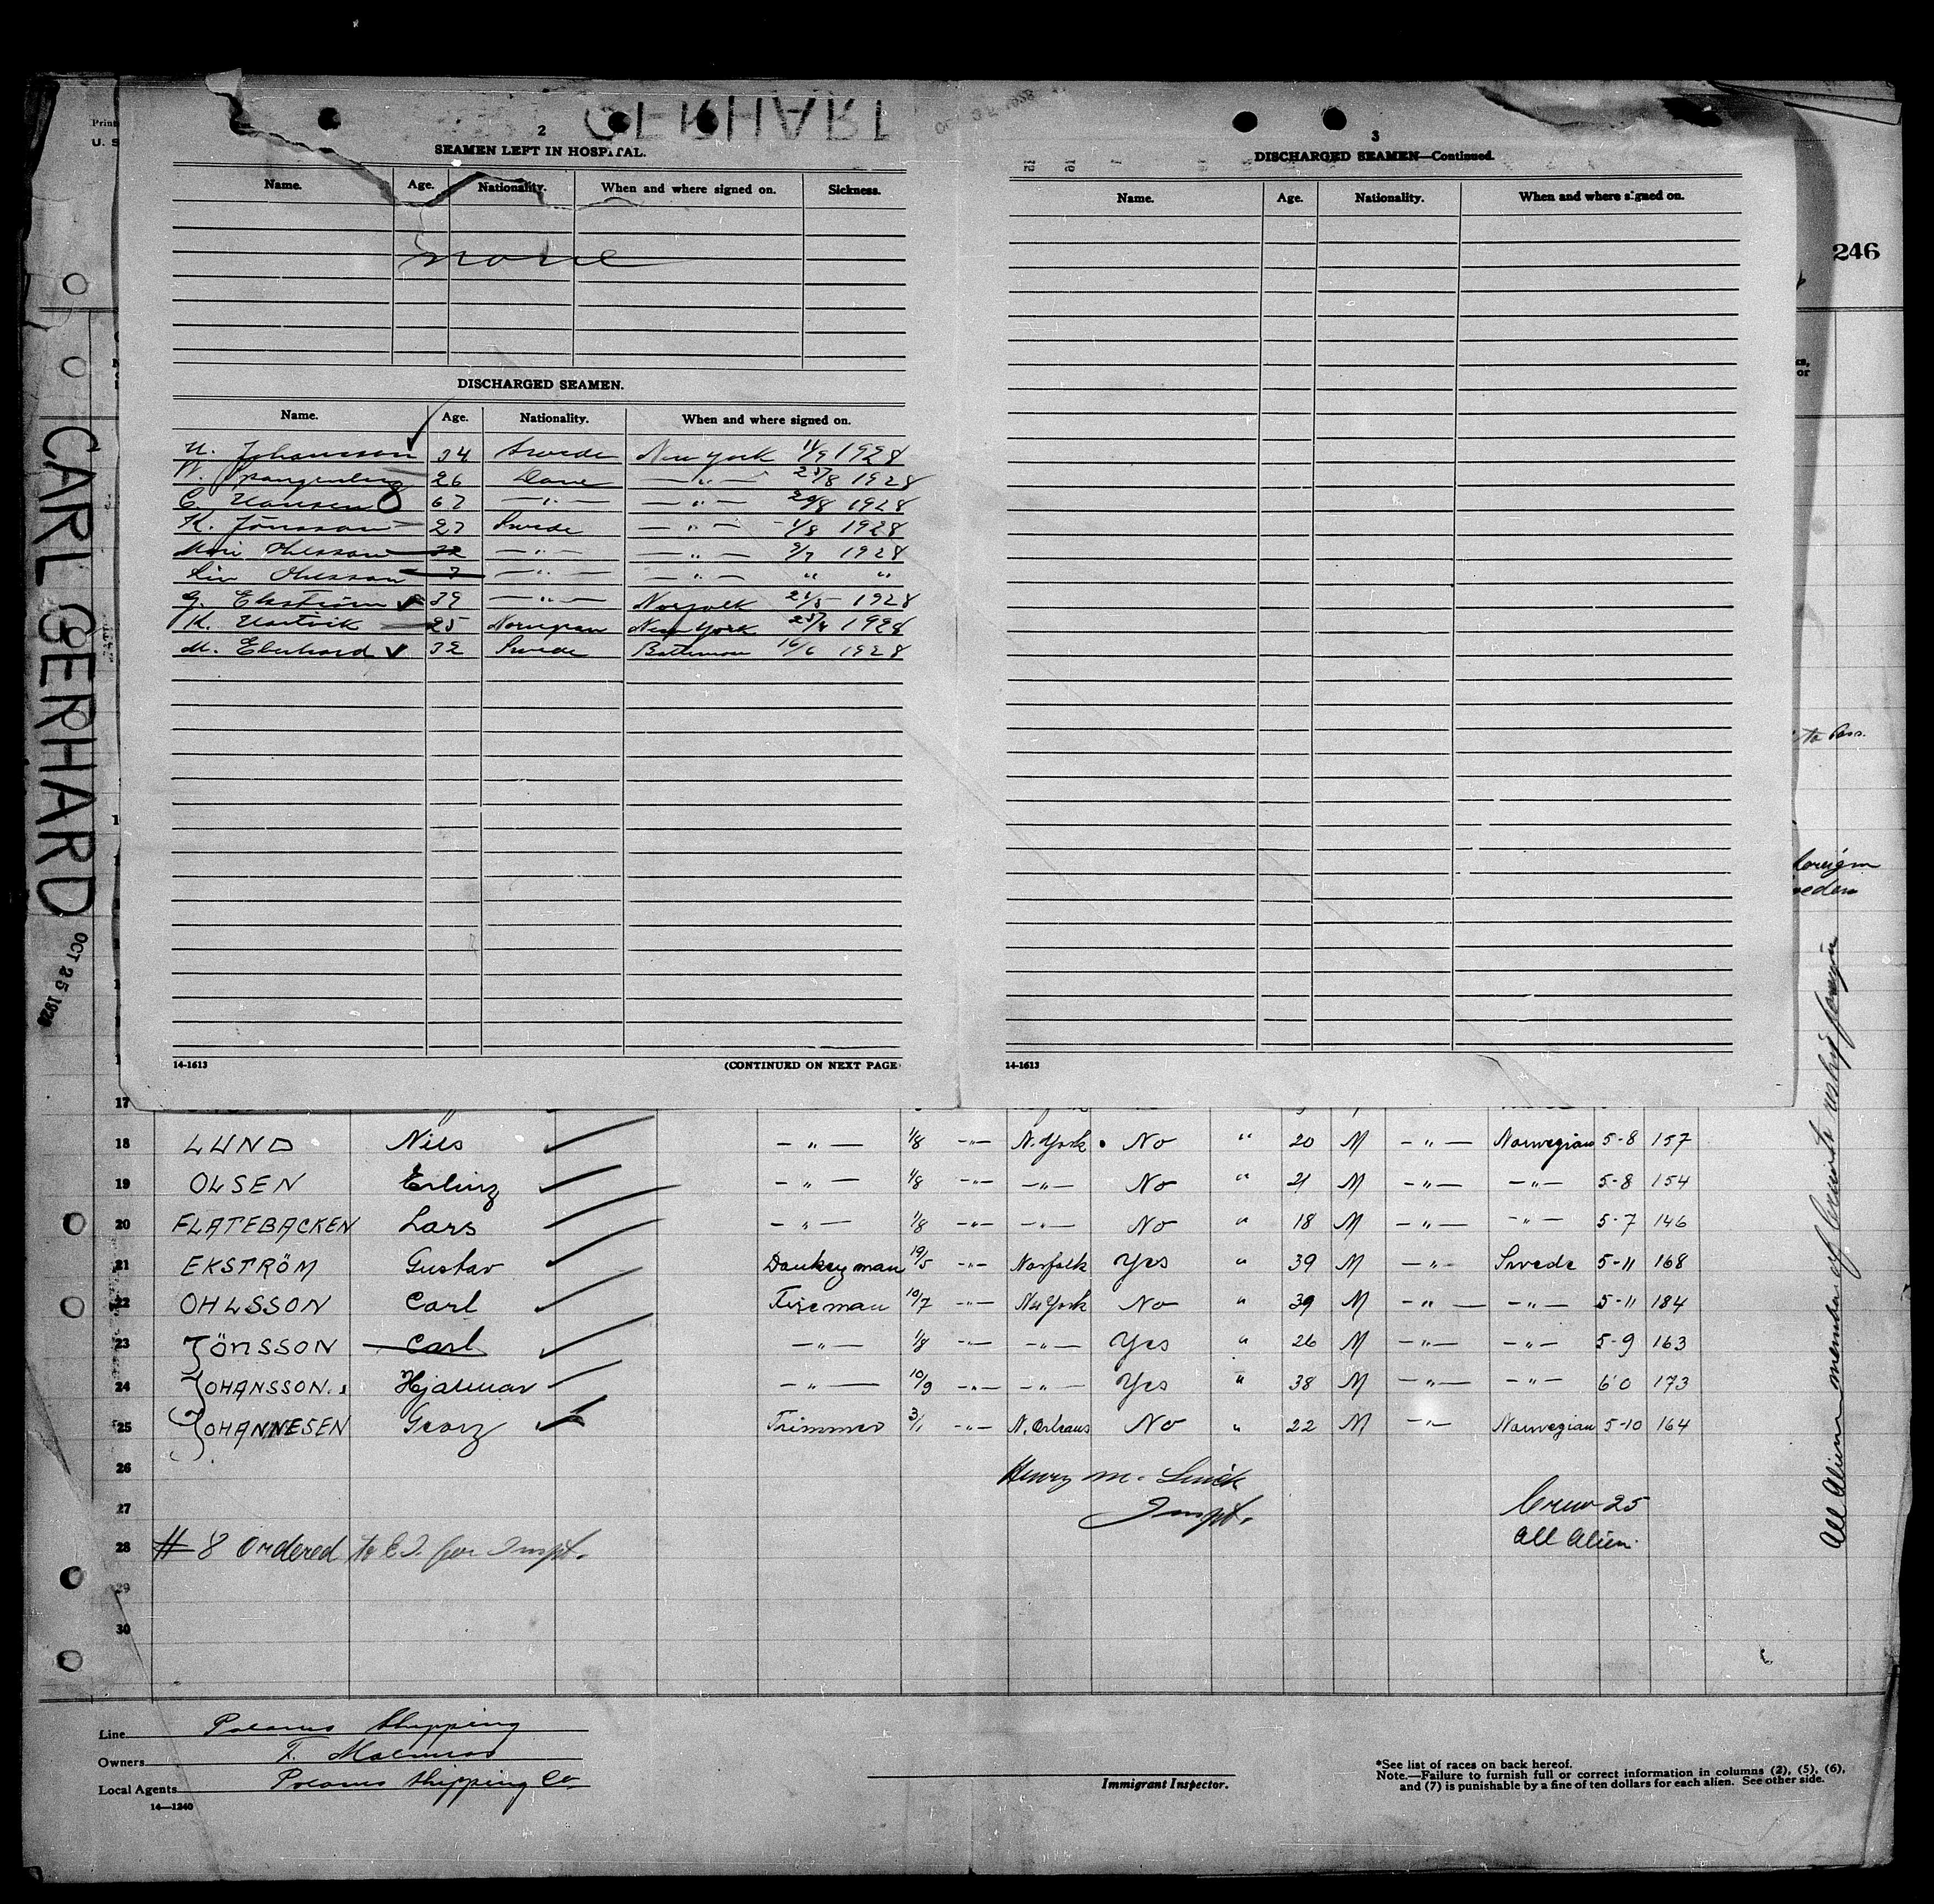 GERHART
2
SEAMEN LEFT IN HOSPITAL.
Name. Age. Nationality. When and where signed on. Sickness.
none
DISCHARGED SEAMEN.
Name. Age. Nationality. When and where signed on.
H. Johansson 34 Swede New York 11/9 1928
W. Spangenberg 26 Dane —"— 25/8 1928
C. Hansen 67 —"— —"— 29/8 1928
K. Jönsson 27 Swede —"— 1/8 1928
Ohlsson 32 —"— —"— 9/7 1928
Ohlsson 7 —"— —"— " "
G. Ekström 39 —"— Norfolk 1928
K. Hartvik 25 Norwegian New York 1928
M. Eberhard 32 Swede Baltimore 16/6 1928
14-1613
(CONTINUED ON NEXT PAGE
3
DISCHARGED SEAMEN—Continued.
Name. Age. Nationality. When and where signed on.
14-1613
246
CARL GERHARD
OCT 25 1928
to Pass.
foreign
17
18 LUND Nils —"— 1/8 —"— N. York No " 20 M —"— Norwegian 5-8 157
19 OLSEN Erling —"— 1/8 —"— —"— No " 21 M —"— —"— 5-8 154
20 FLATEBACKEN Lars —"— 1/8 —"— —"— No " 18 M —"— —"— 5-7 146
21 EKSTRÖM Gustav Donkeyman 19/5 —"— Norfolk Yes " 39 M —"— Swede 5-11 168
22 OHLSSON Carl Fireman 10/7 —"— N. York No " 39 M —"— —"— 5-11 184
23 JÖNSSON Carl —"— 1/8 —"— —"— Yes " 26 M —"— —"— 5-9 163
24 JOHANSSON. Hjalmar —"— 10/9 —"— —"— Yes " 38 M —"— —"— 6-0 173
25 JOHANNESEN Georg Trimmer 3/1 —"— N. Orleans No " 22 M —"— Norwegian 5-10 164
26 Henry M.
27 Inspt. Crew 25
28 # 8 Ordered to E.I. for Inspt. All Alien.
29
30
All Alien members of crew to reship foreign
Line Shipping
Owners
Local Agents Shipping Co
14—1240
Immigrant Inspector.
*See list of races on back hereof.
Note.—Failure to furnish full or correct information in columns (2), (5), (6),
and (7) is punishable by a fine of ten dollars for each alien. See other side.